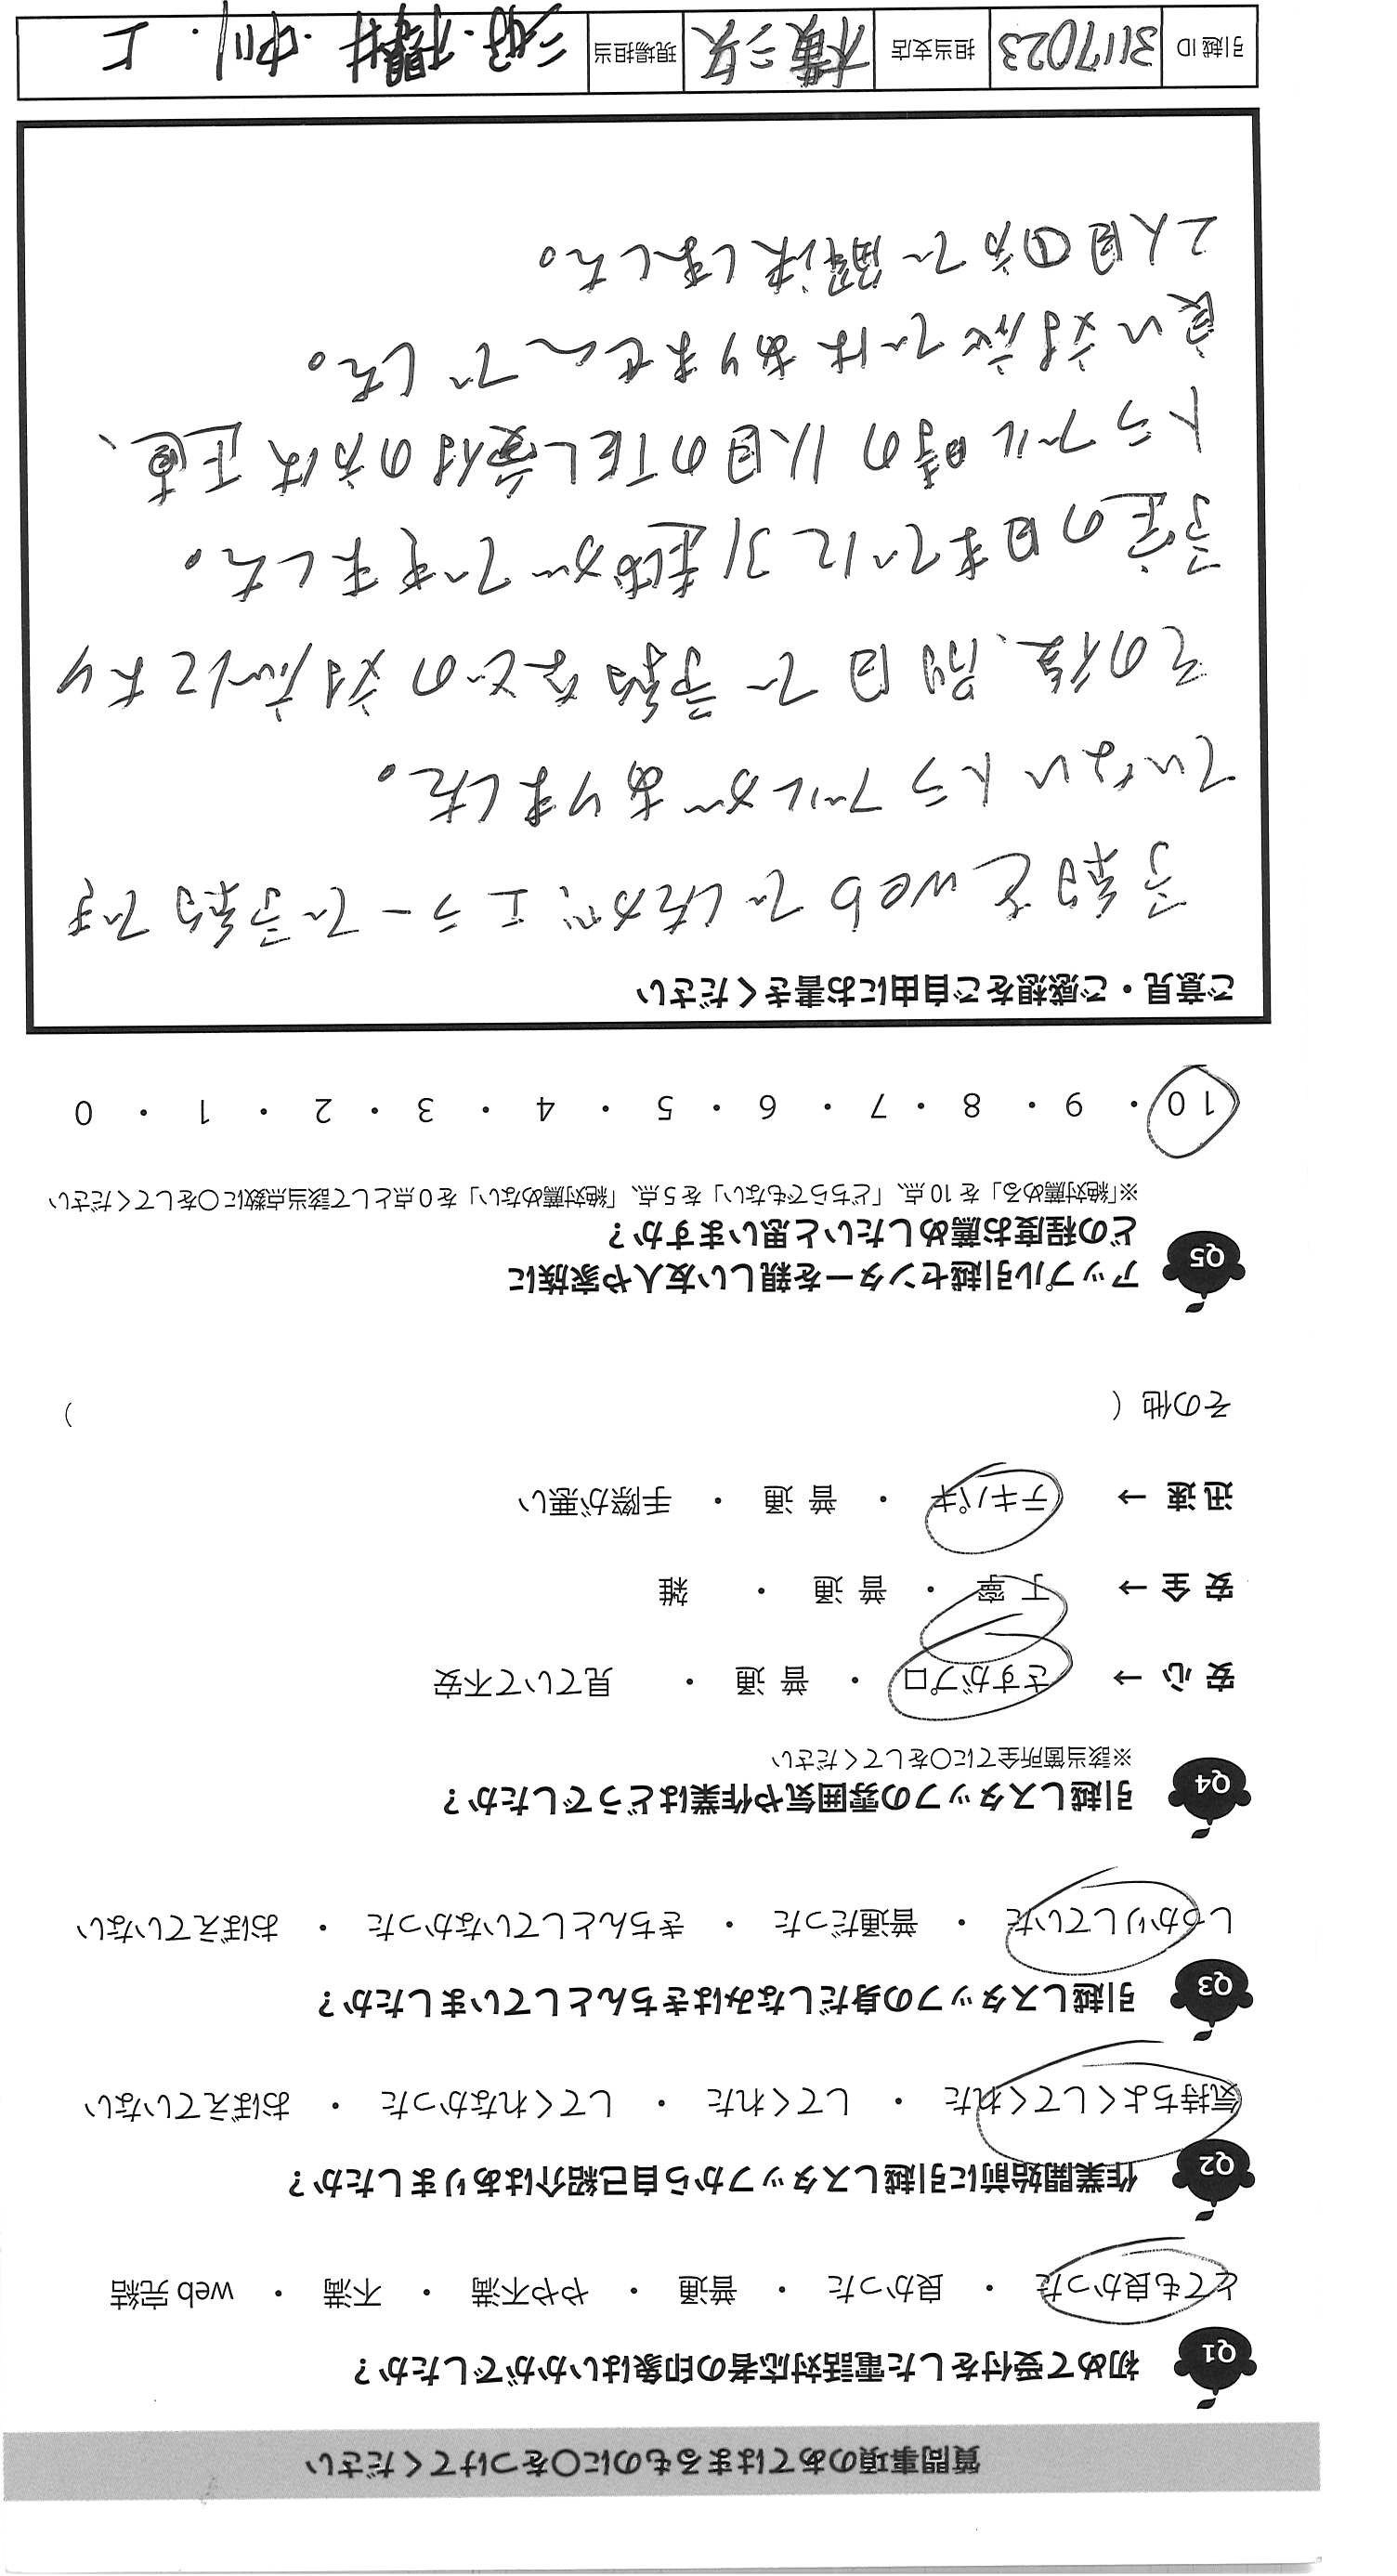 質問事項のあてはまるものに〇をつけてください
Q1 初めて受付をした電話対応者の印象はいかがでしたか？
とても良かった ・ 良かった ・ 普通 ・ やや不満 ・ 不満 ・ web 完結
Q2 作業開始前に引越しスタッフから自己紹介はありましたか？
気持ちよくしてくれた ・ してくれた ・ してくれなかった ・ おぼえていない
Q3 引越しスタッフの身だしなみはきちんとしていましたか？
しっかりしていた ・ 普通だった ・ きちんとしていなかった ・ おぼえていない
Q4 引越しスタッフの雰囲気や作業はどうでしたか？
※該当箇所全てに〇をしてください
安 心 → さすがプロ ・ 普 通 ・ 見ていて不安
安 全 → 丁 寧 ・ 普 通 ・ 雑
迅 速 → テキパキ ・ 普 通 ・ 手際が悪い
その他（ ）
Q5 アップル引越センターを親しい友人や家族に
どの程度お薦めしたいと思いますか？
※「絶対薦める」を 10 点、「どちらでもない」を 5 点、「絶対薦めない」を 0 点として該当点数に〇をしてください
10 ・ 9 ・ 8 ・ 7 ・ 6 ・ 5 ・ 4 ・ 3 ・ 2 ・ 1 ・ 0
ご意見・ご感想をご自由にお書きください
予約をwebでしたが、エラーで予約でき
ていないトラブルがありました。
その後、別日で予約などの対応により
予定の日までに引越ができました。
トラブル時の1人目のTEL受付の方は正直、
良い対応ではありませんでした。
2人目の方で解決しました。
引越 ID 3117023 担当支店 横二矢 現場担当 三好・櫻井・中川・上